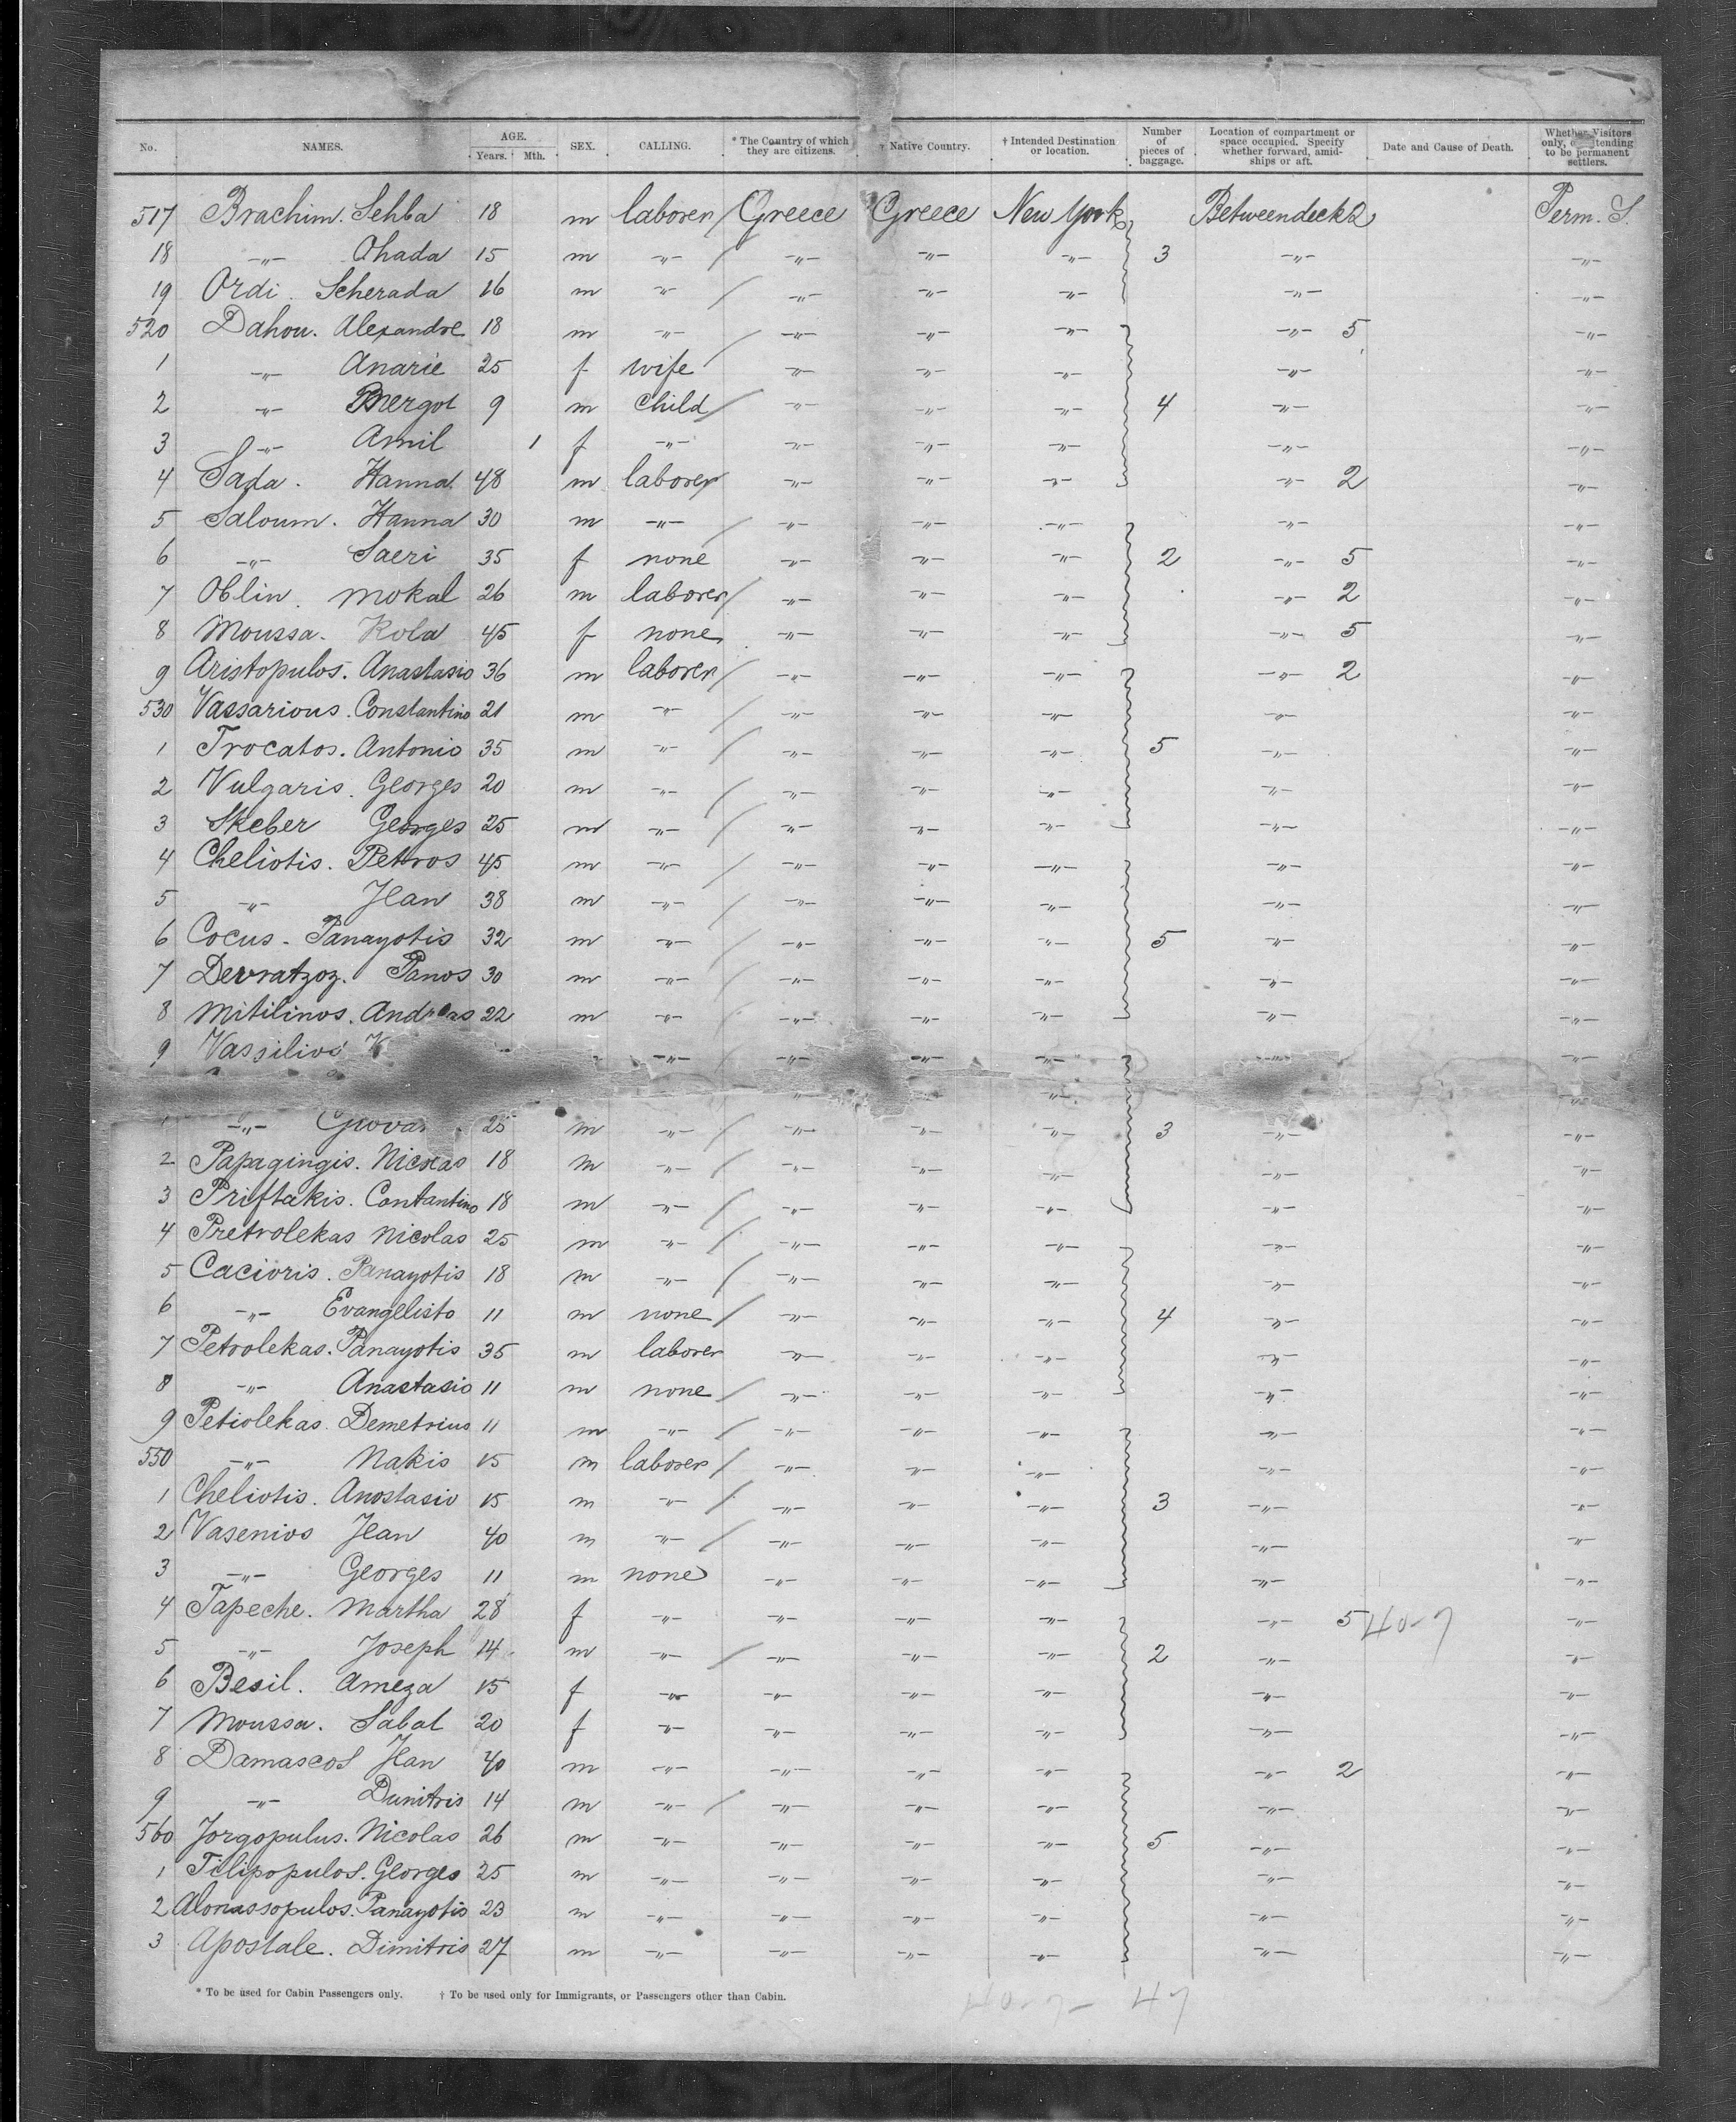 No. NAMES. AGE. Years. Mth. SEX. CALLING. * The Country of which they are citizens. † Native Country. † Intended Destination or location. Number of pieces of baggage. Location of compartment or space occupied. Specify whether forward, amidships or aft. Date and Cause of Death. Whether Visitors only, or intending to be permanent settlers.
517 Brachim. Sehba 18 m laborer Greece Greece New York Betweendeck 2 Perm. S.
18 -"- Ohada 15 m -"- -"- -"- -"- 3 -"- -"-
19 Ordi. Scherada 16 m -"- -"- -"- -"- -"- -"-
520 Dahou. Alexandre 18 m -"- -"- -"- -"- -"- 5 -"-
1 -"- Anarie 25 f wife -"- -"- -"- -"- -"-
2 -"- Mergot 9 m child -"- -"- -"- 4 -"- -"-
3 -"- Amil 1 f -"- -"- -"- -"- -"- -"-
4 Sada. Hanna 48 m laborer -"- -"- -"- -"- 2 -"-
5 Saloum. Hanna 30 m -"- -"- -"- -"- -"- -"-
6 -"- Saeri 35 f none -"- -"- -"- 2 -"- 5 -"-
7 Oblin. Mokal 26 m laborer -"- -"- -"- -"- 2 -"-
8 Moussa. Kola 45 f none -"- -"- -"- -"- 5 -"-
9 Aristopulos. Anastasio 36 m laborer -"- -"- -"- -"- 2 -"-
530 Vassarious. Constantino 21 m -"- -"- -"- -"- -"- -"-
1 Trocatos. Antonio 35 m -"- -"- -"- -"- 5 -"- -"-
2 Vulgaris. Georges 20 m -"- -"- -"- -"- -"- -"-
3 Skeber Georges 25 m -"- -"- -"- -"- -"- -"-
4 Cheliotis. Petros 45 m -"- -"- -"- -"- -"- -"-
5 -"- Jean 38 m -"- -"- -"- -"- -"- -"-
6 Cocus - Panayotis 32 m -"- -"- -"- -"- 5 -"- -"-
7 Devratzoz. Panos 30 m -"- -"- -"- -"- -"- -"-
8 Mitilinos. Andreas 22 m -"- -"- -"- -"- -"- -"-
9 Vassilios -"- -"- -"- -"- -"- -"-
-"- -"-
-"- 25 m -"- -"- -"- -"- 3 -"- -"-
2 Papagingis. Nicolas 18 m -"- -"- -"- -"- -"- -"-
3 Priftakis. Contantino 18 m -"- -"- -"- -"- -"- -"-
4 Pretrolekas Nicolas 25 m -"- -"- -"- -"- -"- -"-
5 Cacioris. Panayotis 18 m -"- -"- -"- -"- -"- -"-
6 -"- Evangelisto 11 m none -"- -"- -"- 4 -"- -"-
7 Petrolekas. Panayotis 35 m laborer -"- -"- -"- -"- -"-
8 -"- Anastasio 11 m none -"- -"- -"- -"- -"-
9 Petiolekas. Demetrius 11 m -"- -"- -"- -"- -"- -"-
550 -"- Nakis 15 m laborer -"- -"- -"- -"- -"-
1 Cheliotis. Anostasio 15 m -"- -"- -"- -"- 3 -"- -"-
2 Vasenios Jean 40 m -"- -"- -"- -"- -"- -"-
3 -"- Georges 11 m none -"- -"- -"- -"- -"-
4 Tapeche. Martha 28 f -"- -"- -"- -"- -"- 5 40-7 -"-
5 -"- Joseph 14 m -"- -"- -"- -"- 2 -"- -"-
6 Besil. Ameza 15 f -"- -"- -"- -"- -"- -"-
7 Moussa. Sabat 20 f -"- -"- -"- -"- -"- -"-
8 Damascos Jean 40 m -"- -"- -"- -"- -"- 2 -"-
9 -"- Dimitris 14 m -"- -"- -"- -"- -"- -"-
560 Jorgopulus. Nicolas 26 m -"- -"- -"- -"- 5 -"- -"-
1 Filipopulos. Georges 25 m -"- -"- -"- -"- -"- -"-
2 Alonassopulos. Panayotis 23 m -"- -"- -"- -"- -"- -"-
3 Apostale. Dimitris 27 m -"- -"- -"- -"- -"- -"-
* To be used for Cabin Passengers only. † To be used only for Immigrants, or Passengers other than Cabin.
40-7- 47